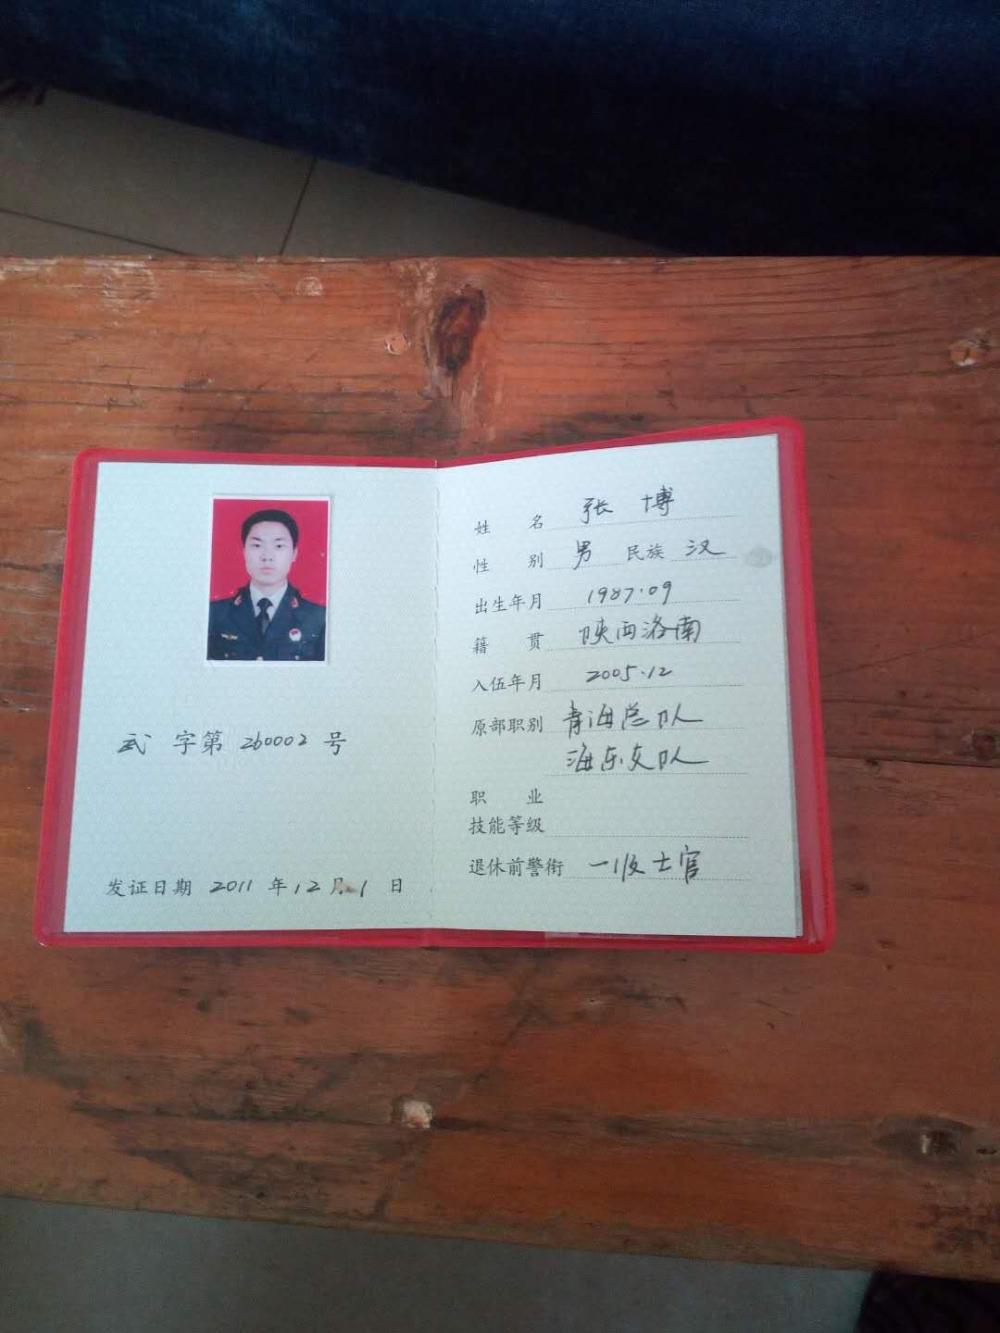 武 字第 260002 号
发证日期 2011 年 12 月 1 日
姓 名 张 博
性 别 男 民族 汉
出生年月 1987.09
籍 贯 陕西洛南
入伍年月 2005.12
原部职别 青海总队
海东支队
职 业
技能等级
退休前警衔 一级士官